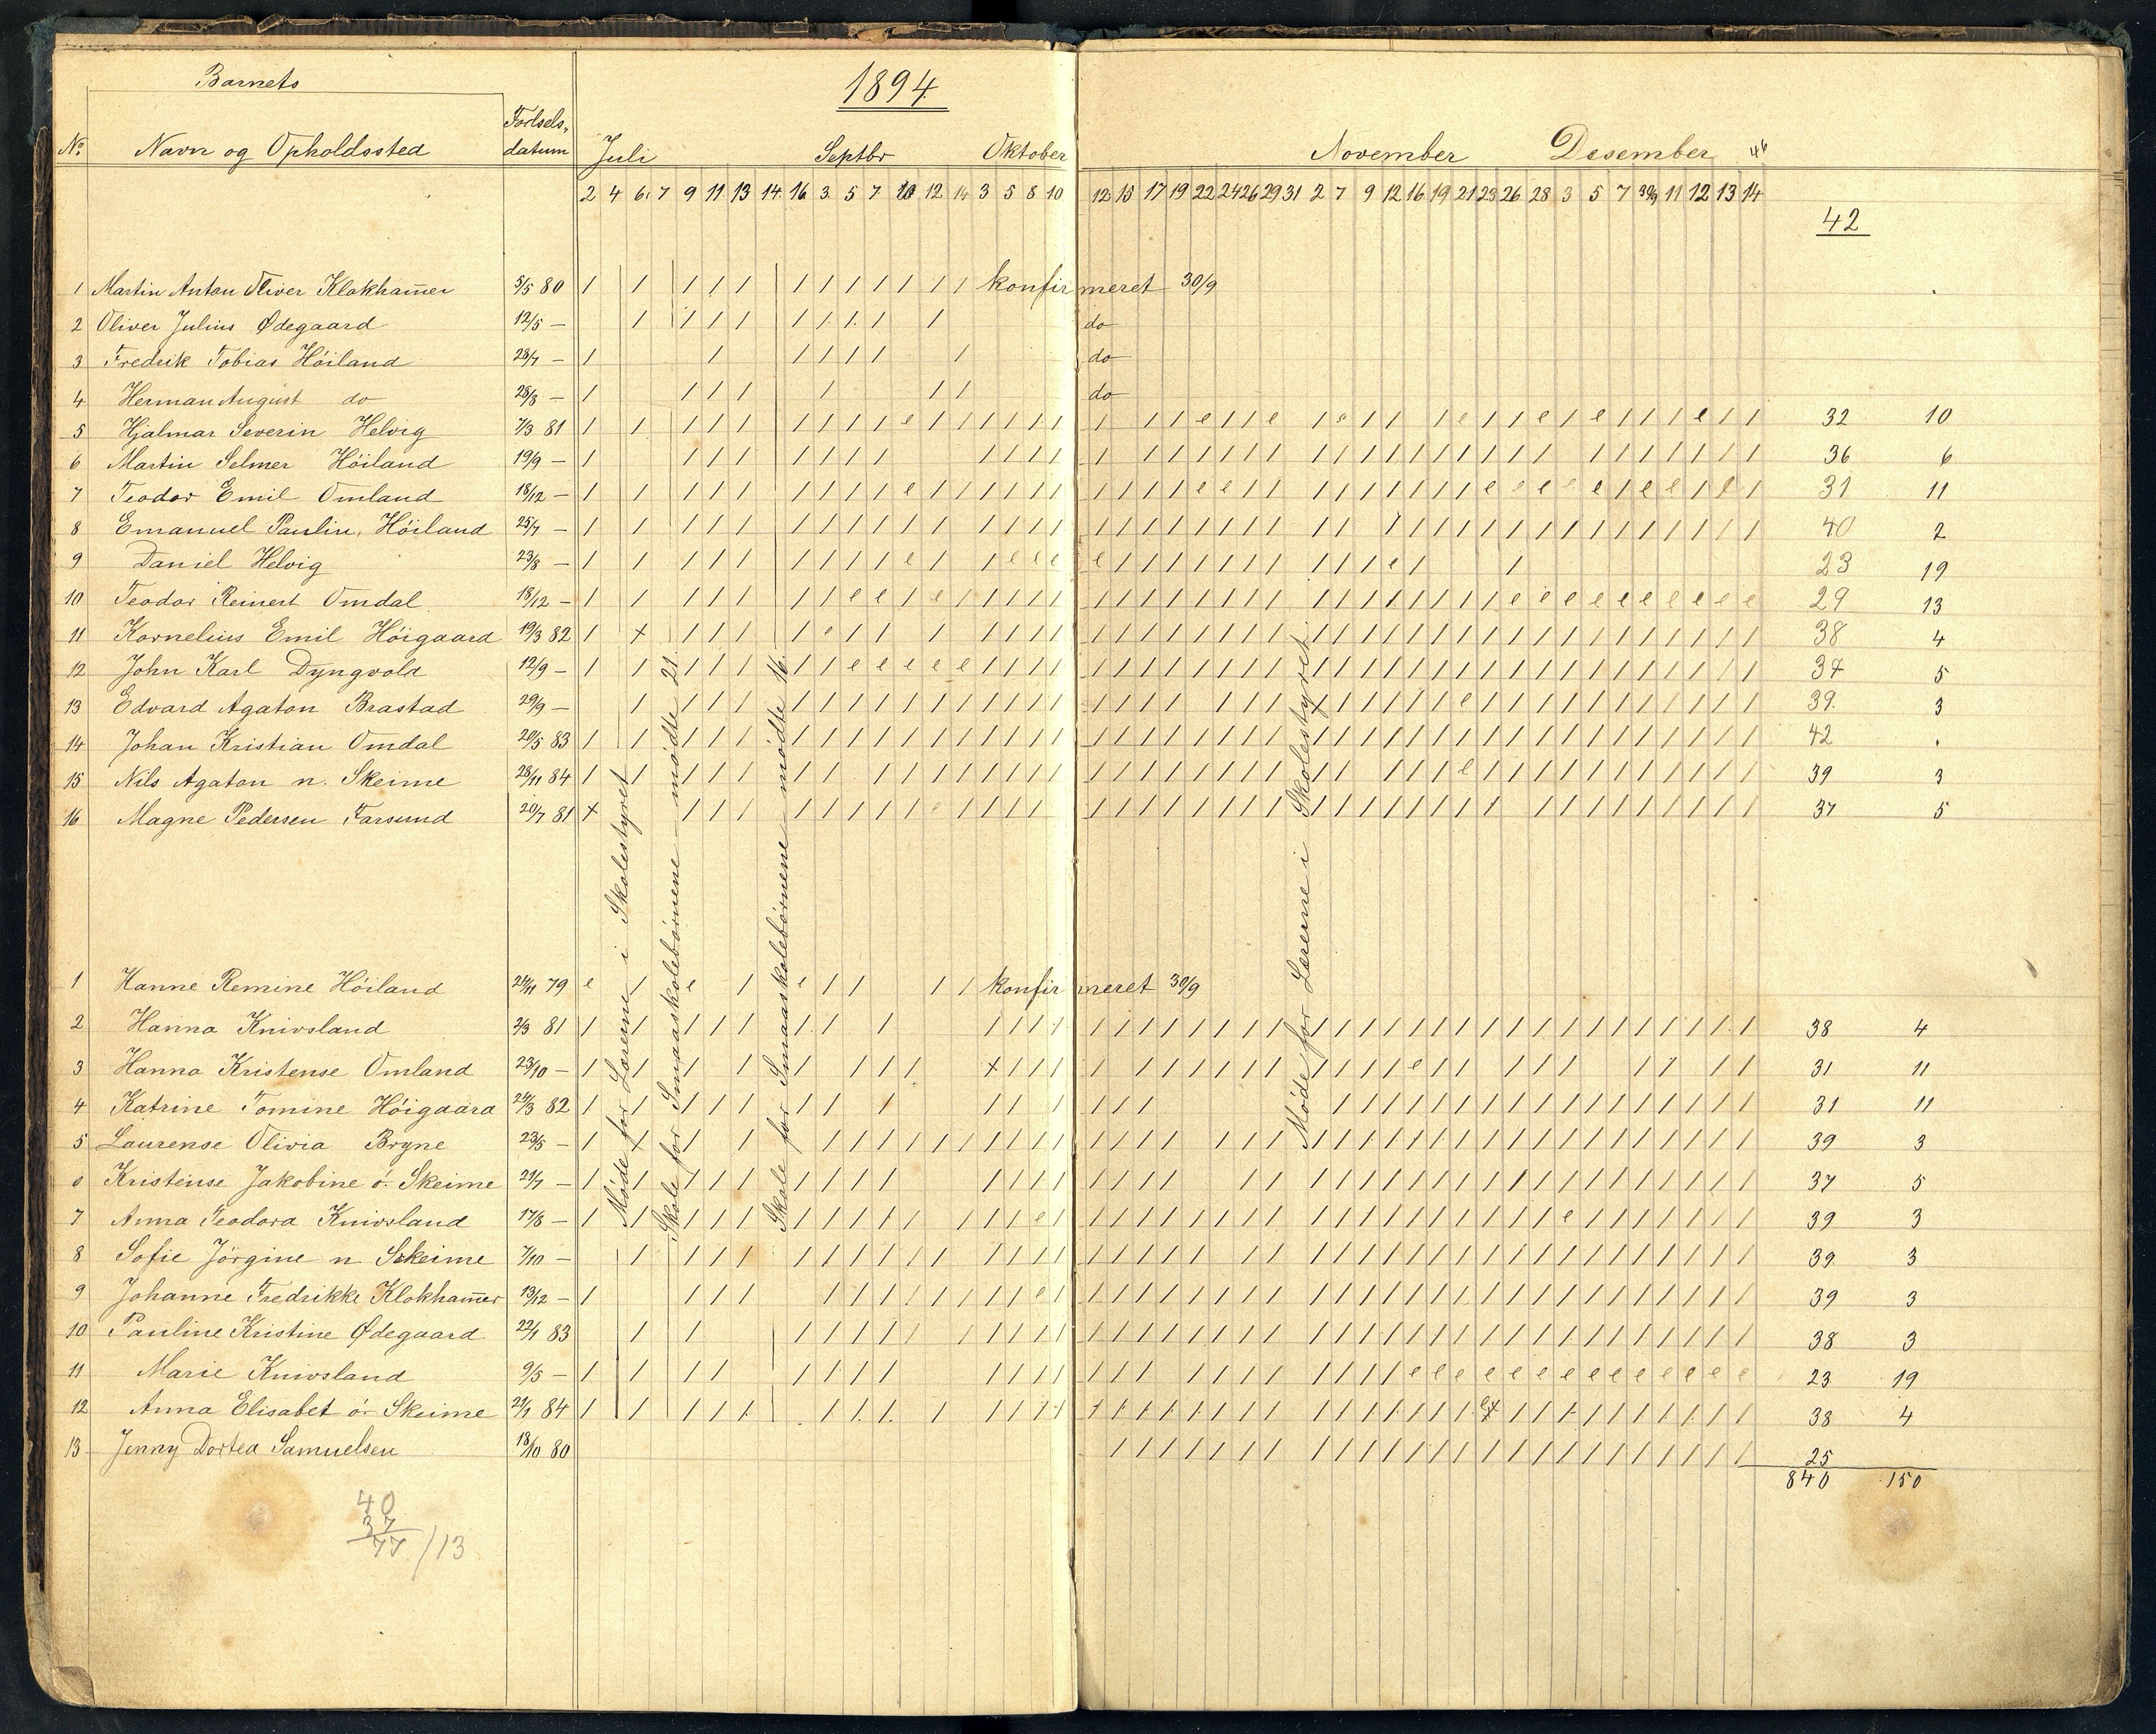 Barnets
1894
No. Navn og Opholdssted Fødsels-datum Juli Septbr Oktober November Desember
2 4 6 7 9 11 13 14 16 3 5 7 10 12 14 3 5 8 10 12 15 17 19 22 24 26 29 31 2 7 9 12 16 19 21 23 26 28 3 5 7 11 12 13 14
42
1 Martin Anton Oliver Klokham̄er 5/5 80 konfirmeret 30/9
2 Oliver Julius Ødegaard 12/5 — do
3 Fredrik Tobias Höiland 28/7 — do
4 Herman August do 28/8 — do
5 Hjalmar Severin Helvig 7/3 81 32 10
6 Martin Selmer Höiland 19/9 — 36 6
7 Teodor Emil Omland 18/12 — 31 11
8 Emanuel Paulin. Höiland 25/7 — 40 2
9 Daniel Helvig 23/8 — 23 19
10 Teodor Reinert Omdal 18/12 — 29 13
11 Kornelius Emil Höigaard 19/3 82 38 4
12 John Karl Dyngvold 12/9 — 37 5
13 Edvard Agaton Brastad 29/9 — 39. 3
14 Johan Kristian Omdal 20/5 83 42 .
15 Nils Agaton n. Skeime 28/11 84 39 3
16 Magne Pedersen Farsund 20/7 81 37 5
Möde for Lærerne i Skolestyret
Skole for Smaaskolebörnene — mödte 21.
Skole for Smaaskolebörnene mödte 16.
Möde for Lærerne i Skolestyret.
1 Hanne Remine Höiland 24/11 79 konfirmeret 30/9
2 Hanna Knivsland 2/3 81 38 4
3 Hanna Kristense Omland 23/10 — 31 11
4 Katrine Tomine Höigaard 24/3 82 31 11
5 Laurense Olivia Bryne 23/5 — 39 3
6 Kristense Jakobine ö. Skeime 21/7 — 37 5
7 Anna Teodora Knivsland 17/8 — 39 3
8 Sofie Jörgine n Skeime 7/10 — 39. 3
9 Johanne Fredrikke Klokham̄er 13/12 — 39 3
10 Pauline Kristine Ødegaard 22/1 83 38 3
11 Marie Knivsland 9/5 — 23 19
12 Anna Elisabet ö. Skeime 21/1 84 38 4
13 Jenny Dortea Samuelsen 18/10 80 25
840 150
40
37
77/13